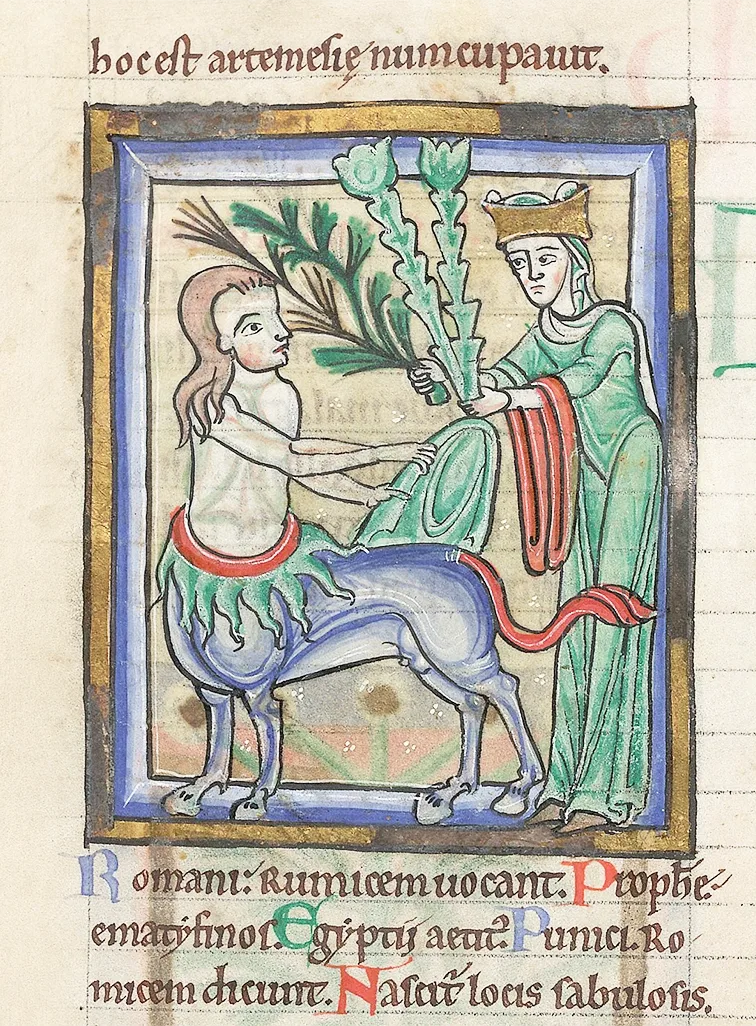 hoc est artemesię numcupauit.
Romani: Rumicem uocant. Prophe
ematyfinos. Egyptij aetit̃. Punici. Ro
micem dicunt. Nascit̃ locis sabulosis.